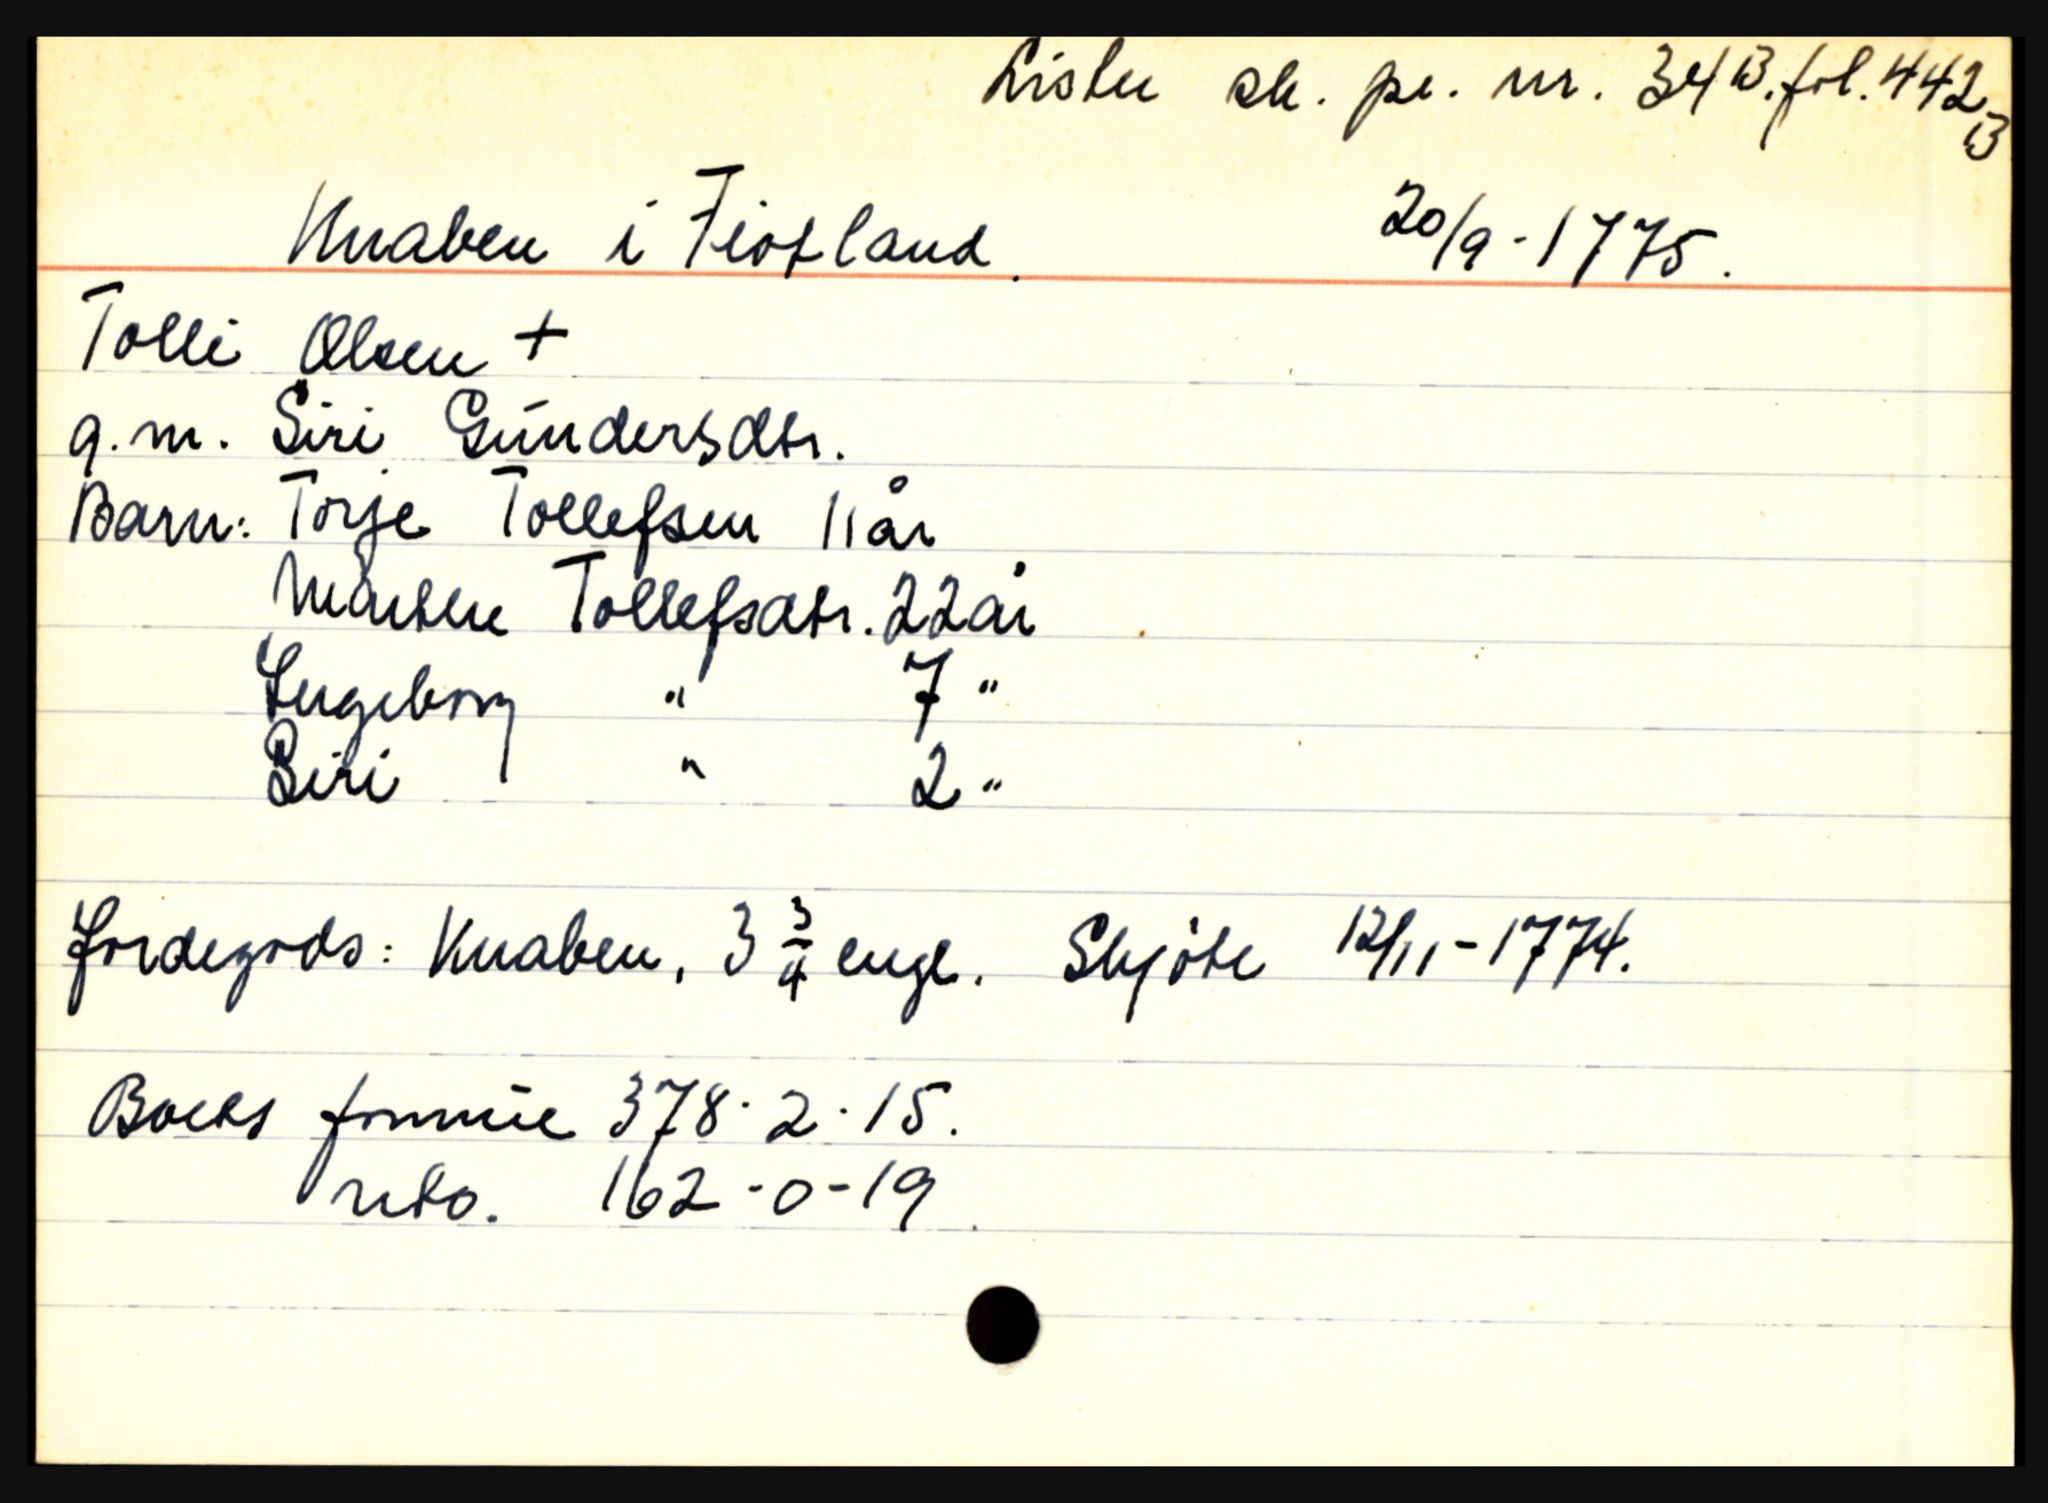 Lister sk. pr. nr. 34B. fol. 442B
Knaben i Fiotland. 20/9-1775.
Tolli Olsen +
g.m. Siri Gundersdtr.
Barn: Torje Tollefsen 11 år
Marthe Tollefsdtr. 22 år
Ingeborg " 7 "
Siri " 2 "
Jordegods: Knaben, 3 3/4 enge. Skjöte 12/11-1774.
Boets formue 378-2-15.
nto. 162-0-19.